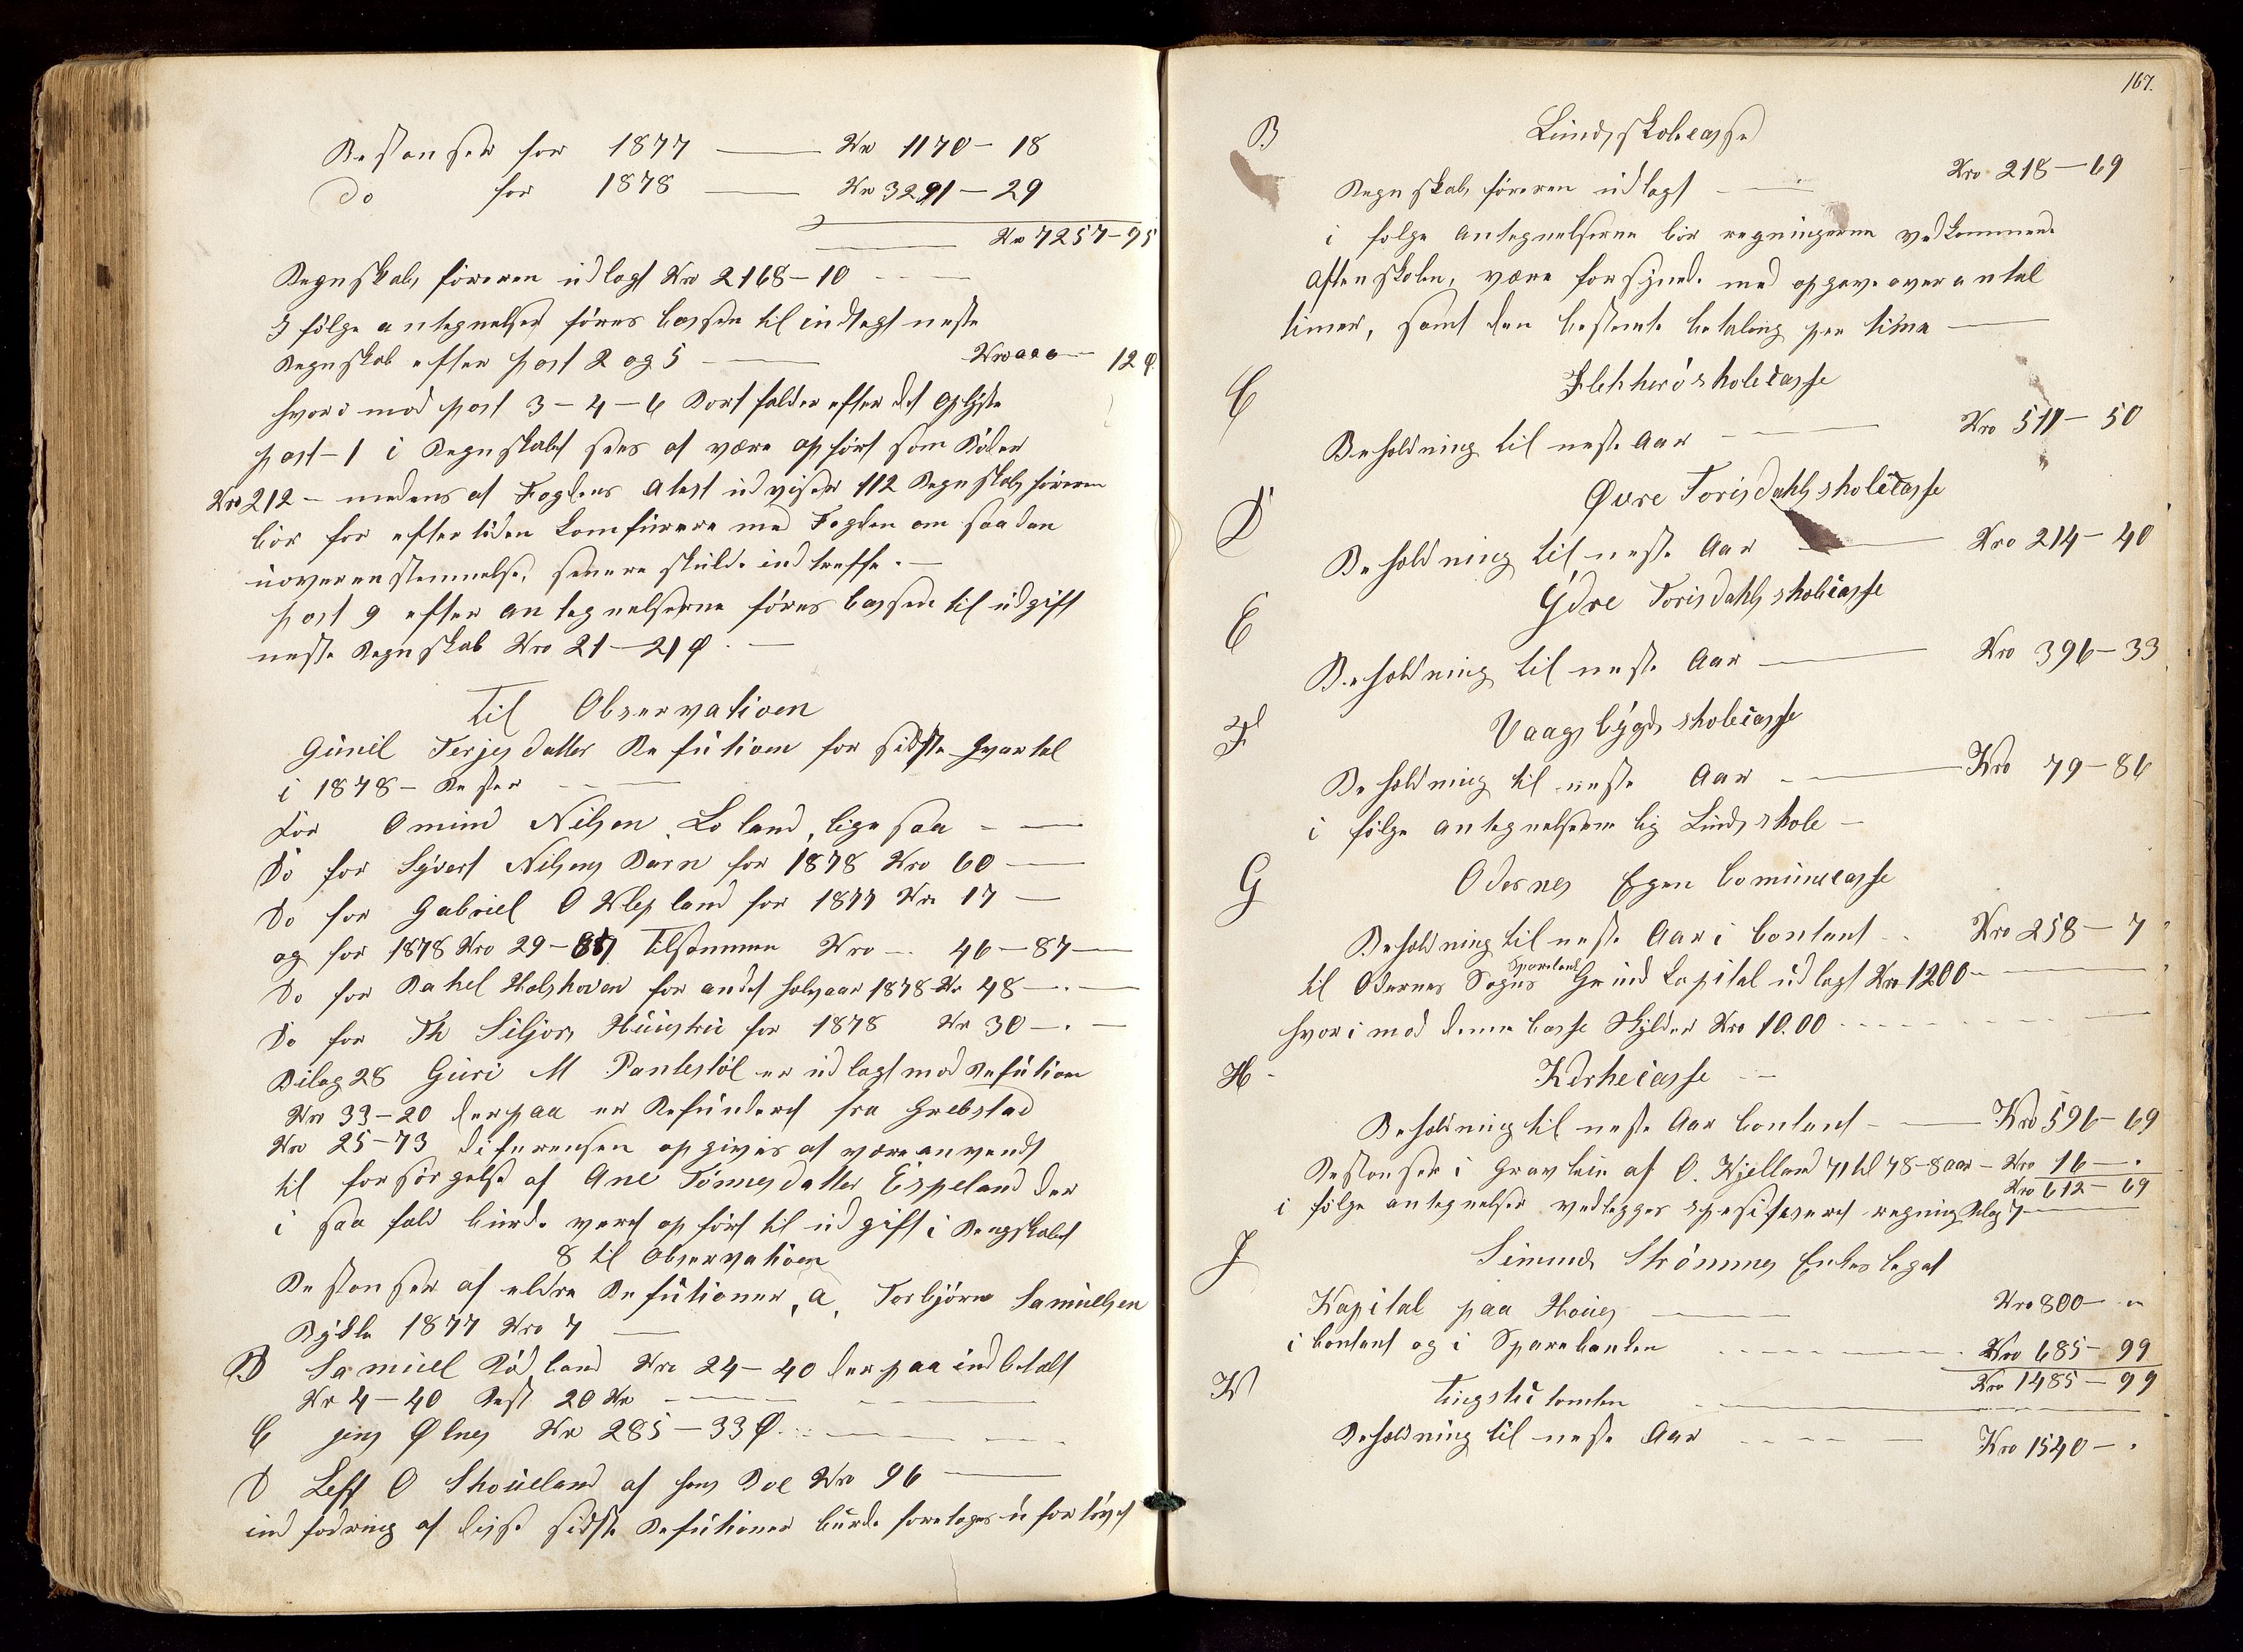 Restanser for 1877 — Kr 1170 - 18
Do for 1878 — Kr 3291 - 29
Kr 7257 - 95
Regnskabsföreren udlagt Kro 2168 - 10
I fölge antegnelser föres Cassen til indtegt neste
Regnskab efter post 2 og 5 — Kro 12 Ø
hvorimod post 3 - 4 - 6 Bortfalder efter det oplyste
post - 1 i Regnskabet sees at være opført som Böder
Kro 212 - medens af Fogdens Atest udviser 112 Regnskabsföreren
bör for eftertiden komfurere med Fogden om saadan
uoverenstemmelse, senere skulde indtreffe. —
post 9 efter antegnelserne föres Cassen til udgift
neste Regnskab Kro 21 - 21 Ø. —
Til Observationen
Gunil Terjesdatter Refution for sidste Qvartal
i 1878 - Rester
For Omund Nilsen Loland, ligesaa
Do for Syvert Nilsens Barn for 1878 Kro 60 —
Do for Gabriel O Klepland for 1877 Kr 17 —
og for 1878 Kro 29 - 87 Tilsammen Kro - 46 - 87 —
Do for Rakel Holskoven for andet halvaar 1878 Kr 48 —
Do for Th Siljors Huustru for 1878 Kr 30 — . —
Bilag 28 Guri M Pantestöl er udlagt mod Refution
Kr 33 - 20 derpaa er Refunderet fra Grebstad
Kro 25 - 73 diferensen opgives at være anvendt
til forsörgelse af Ane Tönnesdatter Espeland der
i saa fald burde veret opfört til udgift i Rengskabet
8 til Observation
Restanser af eldre Refutioner, a, Torbjörn Samuelsen
Bydle 1877 Kro 7 —
B Samuel Rödland Kro 24 - 40 derpaa indbetalt
Kr 4 - 40 Rest 20 Kr
C jens Ølnes Kr 285 - 33 Ø
D Leff O Skoueland af hans Boe Kro 96
indfodring af disse sidste Refutioner burde foretages ufortövet
167.
B Lunds skolecasse
Regnskabsföreren udlagt — Kro 218 - 69
i folge antegnelserne bör regningerne vedkommende
Aftenskolen, være forsynede med opgave over antal
timer, samt den bestemte betaling per time —
C Flekkerö skolecasse
Beholdning til neste Aar — Kro 511 - 50
D Øvre Torisdahls skolecasse
Beholdning til neste Aar — Kro 214 - 40
E Ydre Torisdahls skolecasse
Beholdning til neste Aar — Kro 396 - 33
F Vaagsbygds skolecasse
Beholdning til neste Aar — Kro 79 - 86
i fölge antegnelserne lig Lunds skole —
G Odernes Egen Comunecasse
Beholdning til neste Aar i Contant — Kro 258 - 7
til Odernes Sogns Sparebank Grundkapital udlagt Kro 1200 —
hvorimod denne Casse Skylder Kro 10.00
H - Kirkecasse —
Beholdning til neste Aar Contant — Kro 596 - 69
Restanser i Gravleie af O. Kjelland 71 til 78 - 8 aar - Kro 16 — .
Kro 612 - 69
i fölge antegnelser vedlegges spesifiseret regning Bilag 7
J Simund Strömmes Enkes legat
Kapital paa Houes — Kro 800 —
i Contant og i Sparebanken — Kro 685 - 99
Kro 1485 - 99
K Tingstutomten
Beholdning til neste Aar — Kro 1540 - .